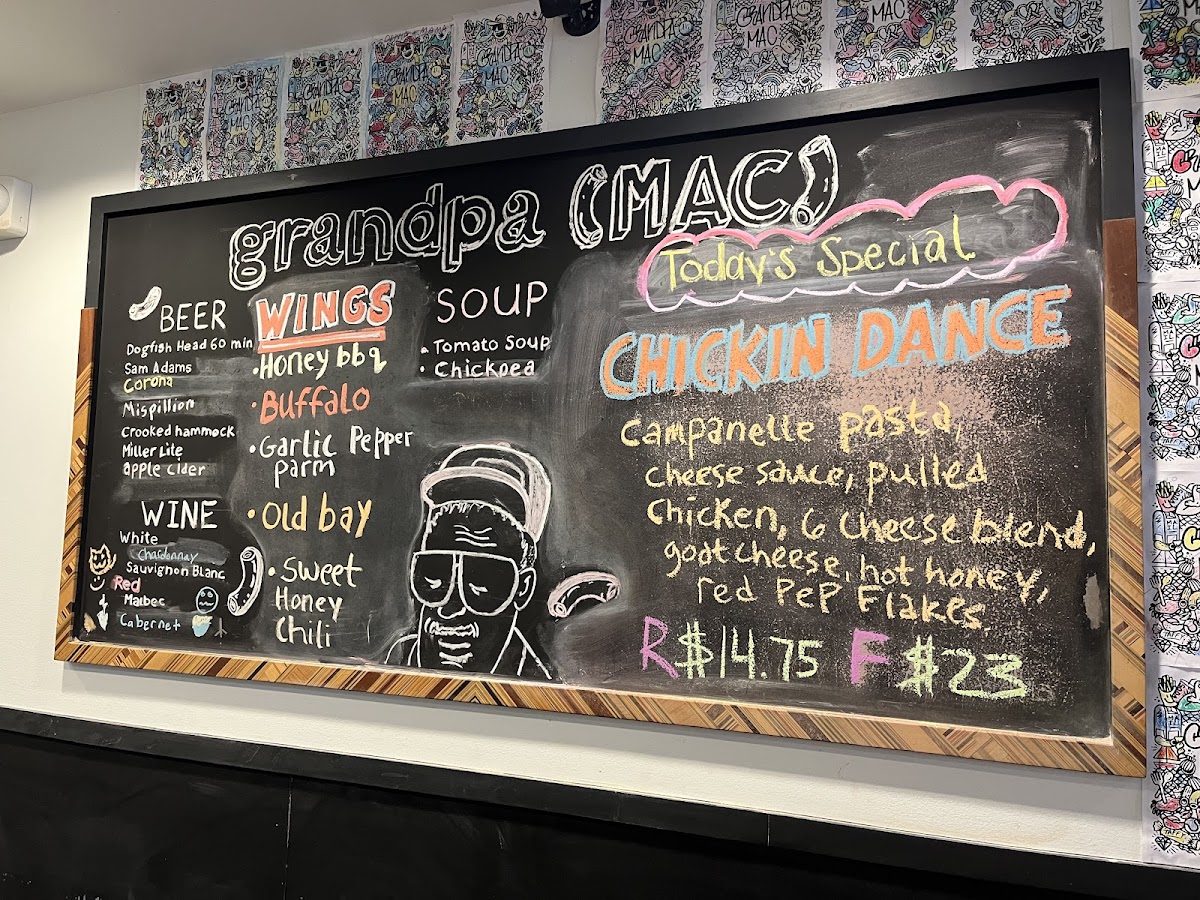 grandpa (MAC)
BEER
Dogfish Head 60 min
Sam Adams
Corona
Mispillion
Crooked hammock
Miller Lite
apple cider
WINE
White
Chardonnay
Sauvignon Blanc
Red
Malbec
Cabernet
WINGS
• Honey bbq
• Buffalo
• Garlic Pepper
parm
• Old bay
• Sweet
Honey
Chili
SOUP
• Tomato Soup
• Chickpea
Today's Special
CHICKIN DANCE
Campanelle pasta,
cheese sauce, pulled
Chicken, 6 cheese blend,
goat cheese, hot honey,
red PeP Flakes
R $14.75 F $23
GRANDPA
MAC
GRANDPA
MAC
GRANDPA
MAC
GRANDPA
MAC
GRANDPA
MAC
GRANDPA
MAC
GRANDPA
MAC
MAC